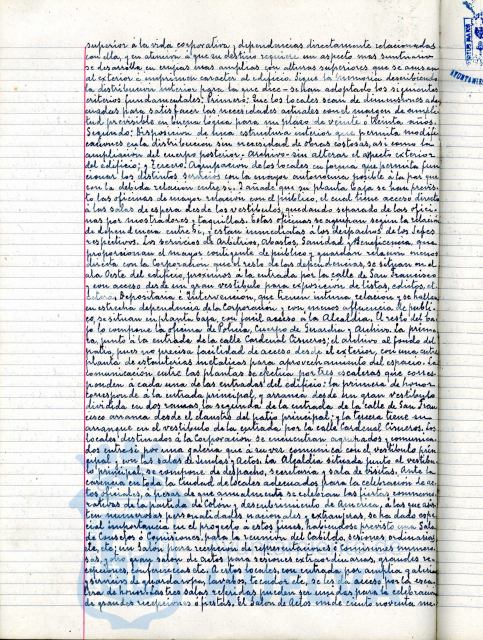 superior à la vida corporativa y dependencias directamente relacionadas
con ella, y en atención a que su destino requiere un aspecto mas suntuario
se desarrolla en crujias mas amplias con alturas superiores que se acusan
al exterior é imprimen caracter al edificio. Sigue la memoria describiendo
la distribución interior para la que dice = se han adoptado los siguientes
criterios fundamentales: Primero; Que los locales sean de dimensiones ade-
cuadas para satisfacer las necesidades actuales con el margen de ampli-
tud previsible en buena lógica para un plazo de veinte ó treinta años.
Segundo; Disposición de una estructura interior que permita modifi-
caciones en la distribución sin necesidad de obras costosas, así como la
ampliación del cuerpo posterior - Archivo - sin alterar el aspecto exterior
del edificio; y Tercero: Agrupación de los locales en forma que permita fun-
cionar los distintos servicios con la mayor autonomia posible á la par que
con la debida relación entre si. Y añade que su planta baja se han previs-
to las oficinas de mayor relación con el público, el cual tiene acceso directo
á las salas de espera desde los vestibulos, quedando separado de las ofici-
nas por mostradores y taquillas. Estas oficinas se agrupan según la relación
de dependencia entre si, y estan inmediatas à los despachos de los Jefes
respectivos. Los servicios de Arbitrios, Abastos, Sanidad y Beneficencia, que
proporcionan el mayor contingente de público y guardan relación menos
directa con la Corporación y con el resto de las dependencias, se situan en el
ala Oeste del edificio, proximos à la entrada por la calle de San Francisco
y con acceso desde un gran vestibulo para exposición de listas, edictos, etc.
Depositaria é Intervención, que tienen intima relación y se hallan
en estrecha dependencia de la Corporación y con menos afluencia de públi-
co, se situan en planta baja, con facil acceso à la Alcaldia. El resto del ba-
jo lo compone la oficina de Policia, Cuerpo de Guardia y Archivo. La prime-
ra, junto à la entrada de la calle Cardenal Cisneros; el archivo al fondo del
patio, pues no precisa facilidad de acceso desde el exterior, con una entre-
planta de estanterias metalicas para aprovechamiento del espacio. La
comunicación entre las plantas se efectua por tres escaleras que corres-
ponden á cada una de las entradas del edificio: la primera de honor
corresponde á la entrada principal, y arranca desde un gran vestibulo
dividida en dos ramas; la segunda de la entrada de la calle de San Fran-
cisco arranca desde el claustro del patio principal; y la tercera tiene su
arranque en el vestibulo de la entrada por la calle Cardenal Cisneros. Los
locales destinados á la Corporación se encuentran agrupados y comunica-
dos entre si por una galeria que à su vez comunica con el vestibulo prin-
cipal y con las salas de Juntas y Actos. La Alcaldia situada junto al vestibu-
lo principal, se compone de despacho, secretaria y sala de visitas. Ante la
carencia en toda la ciudad de locales adecuados para la celebración de ac-
tos oficiales, á pesar de que anualmente se celebran las fiestas conmemo-
rativas de la partida de Colón y descubrimiento de América, á las que asis-
ten numerosas personalidades nacionales y extranjeras, se ha dado espe-
cial importancia en el proyecto á estos fines, habiendose previsto una Sala
de Consejos ó Comisiones, para la reunión del Cabildo, sesiones ordinarias
etc, etc; un Salón para recepción de representaciones ó Comisiones numero-
sas, y otro gran salón de actos para sesiones extraordinarias, grandes re-
cepciones, conferencias etc. A estos locales, con entrada por amplia galeria
y servicios de guardaropa, lavabos, tocador etc, se les dá acceso por la esca-
lera de honor. Las tres salas referidas pueden ser unidas para la celebración
de grandes recepciones ó fiestas. El Salón de Actos mide ciento noventa me-